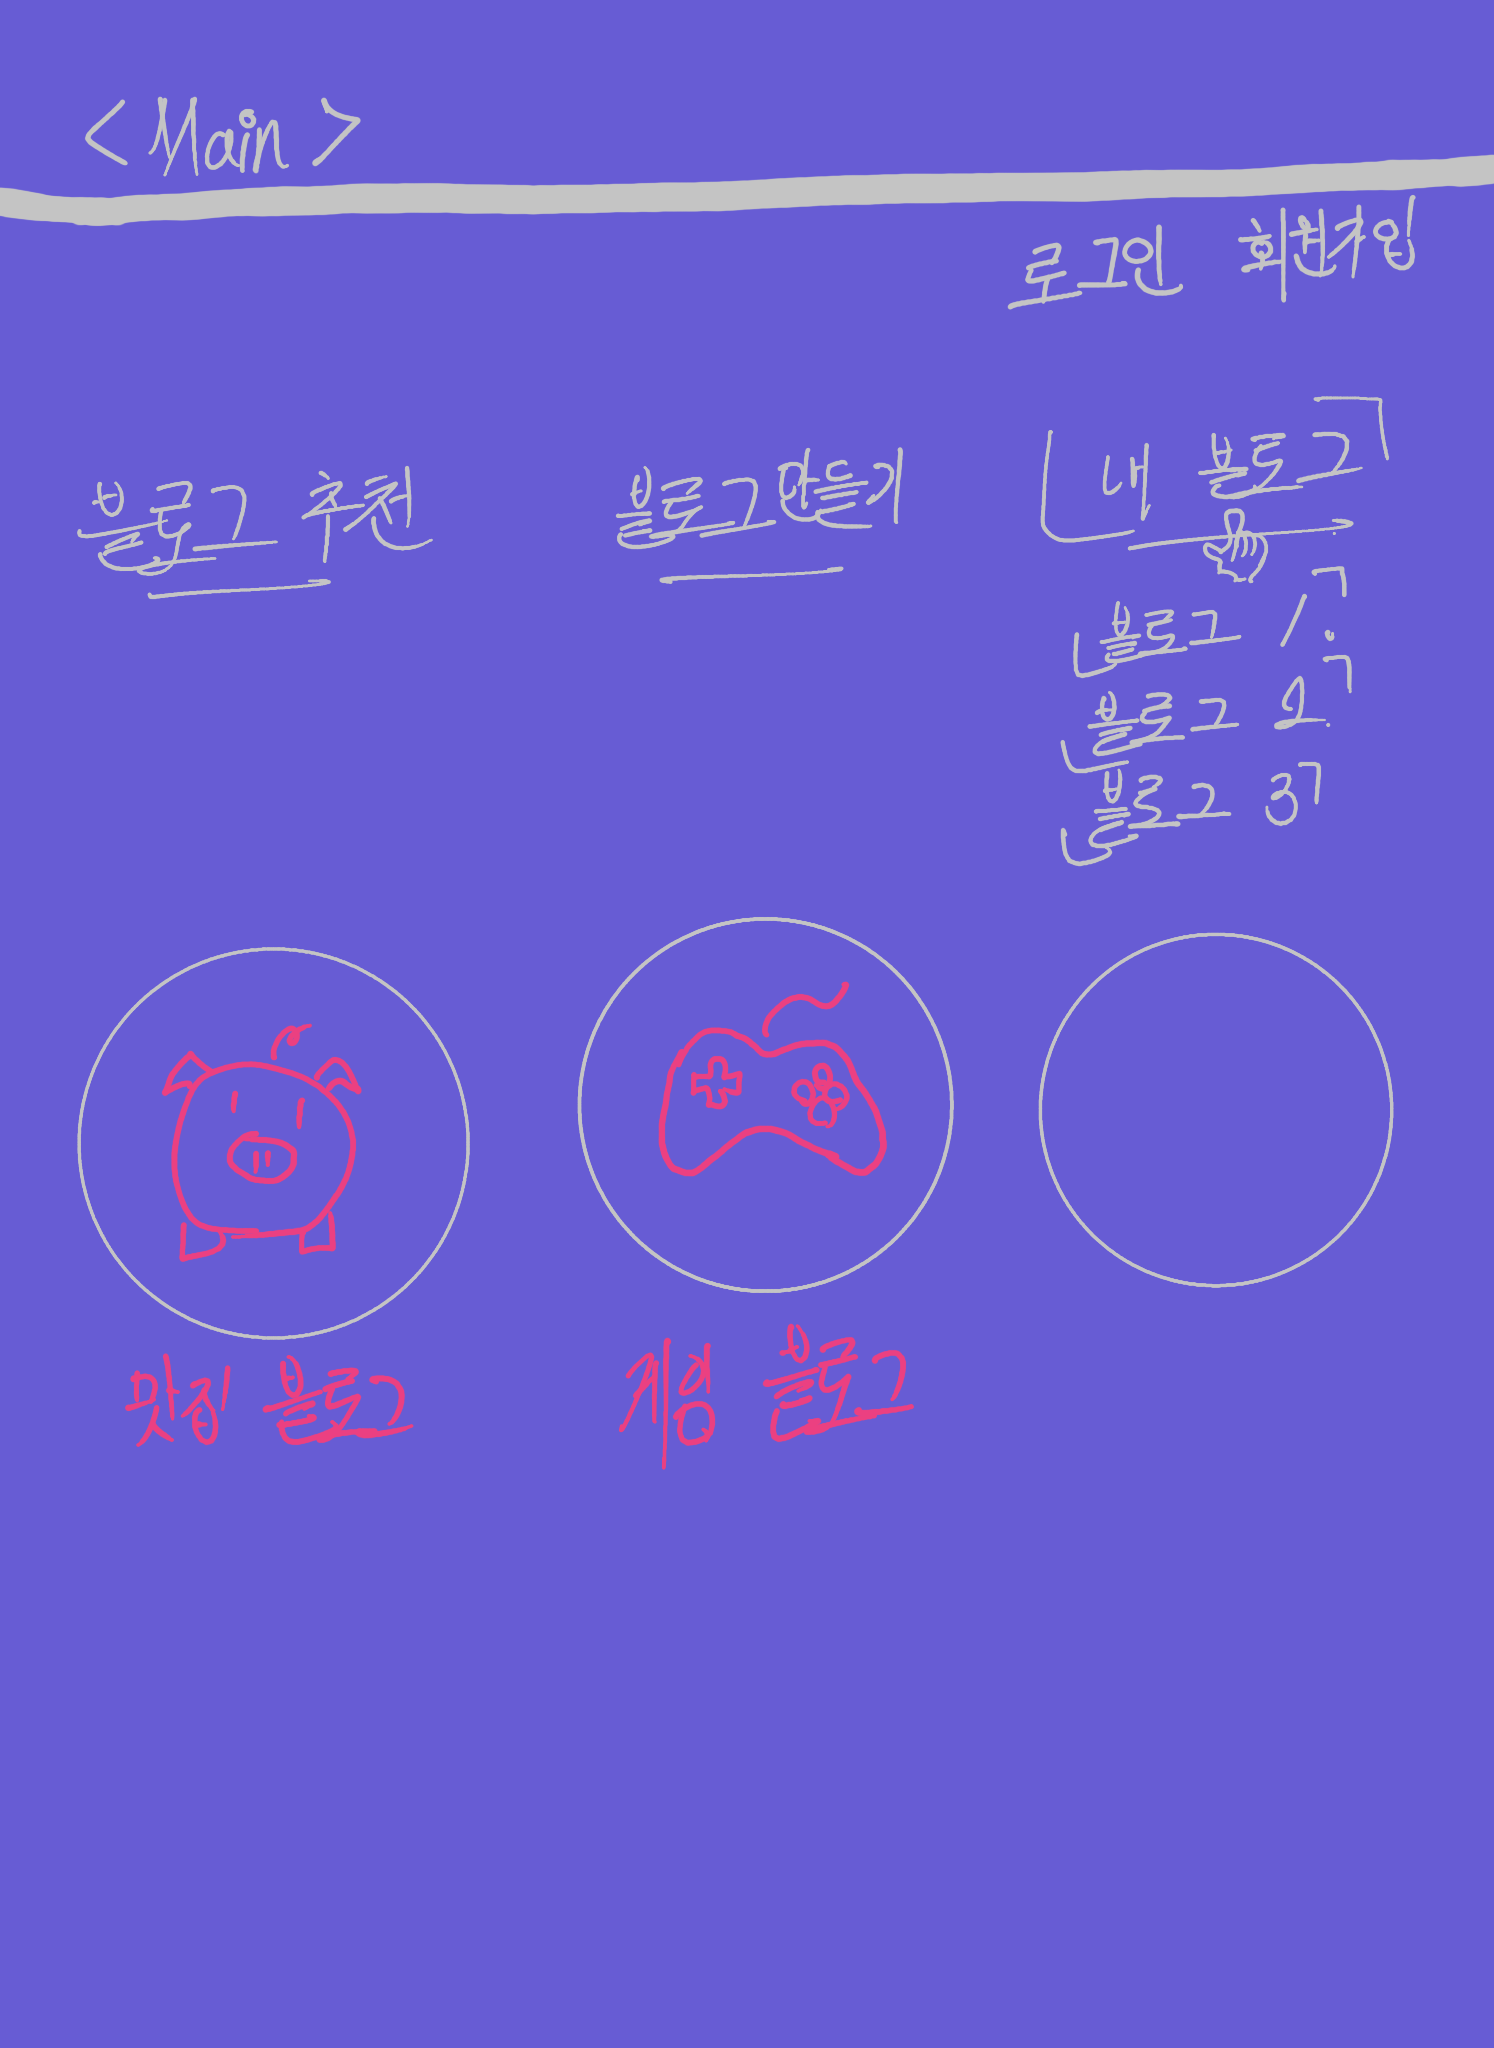 <Main>
로그인 회원가입
블로그 추천 블로그 만들기 내 블로그
블로그 1.
블로그 2.
블로그 3
맛집 블로그 게임 블로그